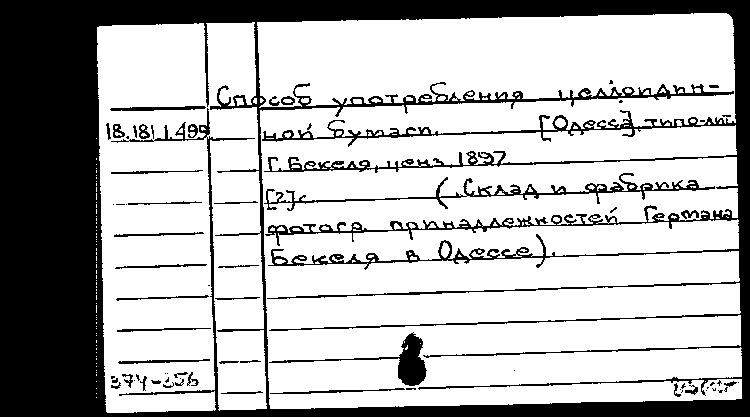 Способ употребления целлоидин-
18.181.1.499 ной бумаги. [Одесса], типо-лит.
Г. Бекеля, ценз. 1897
[2]с. (Склад и фабрика
фотогр. принадлежностей Германа
Бекеля в Одессе).
374-256